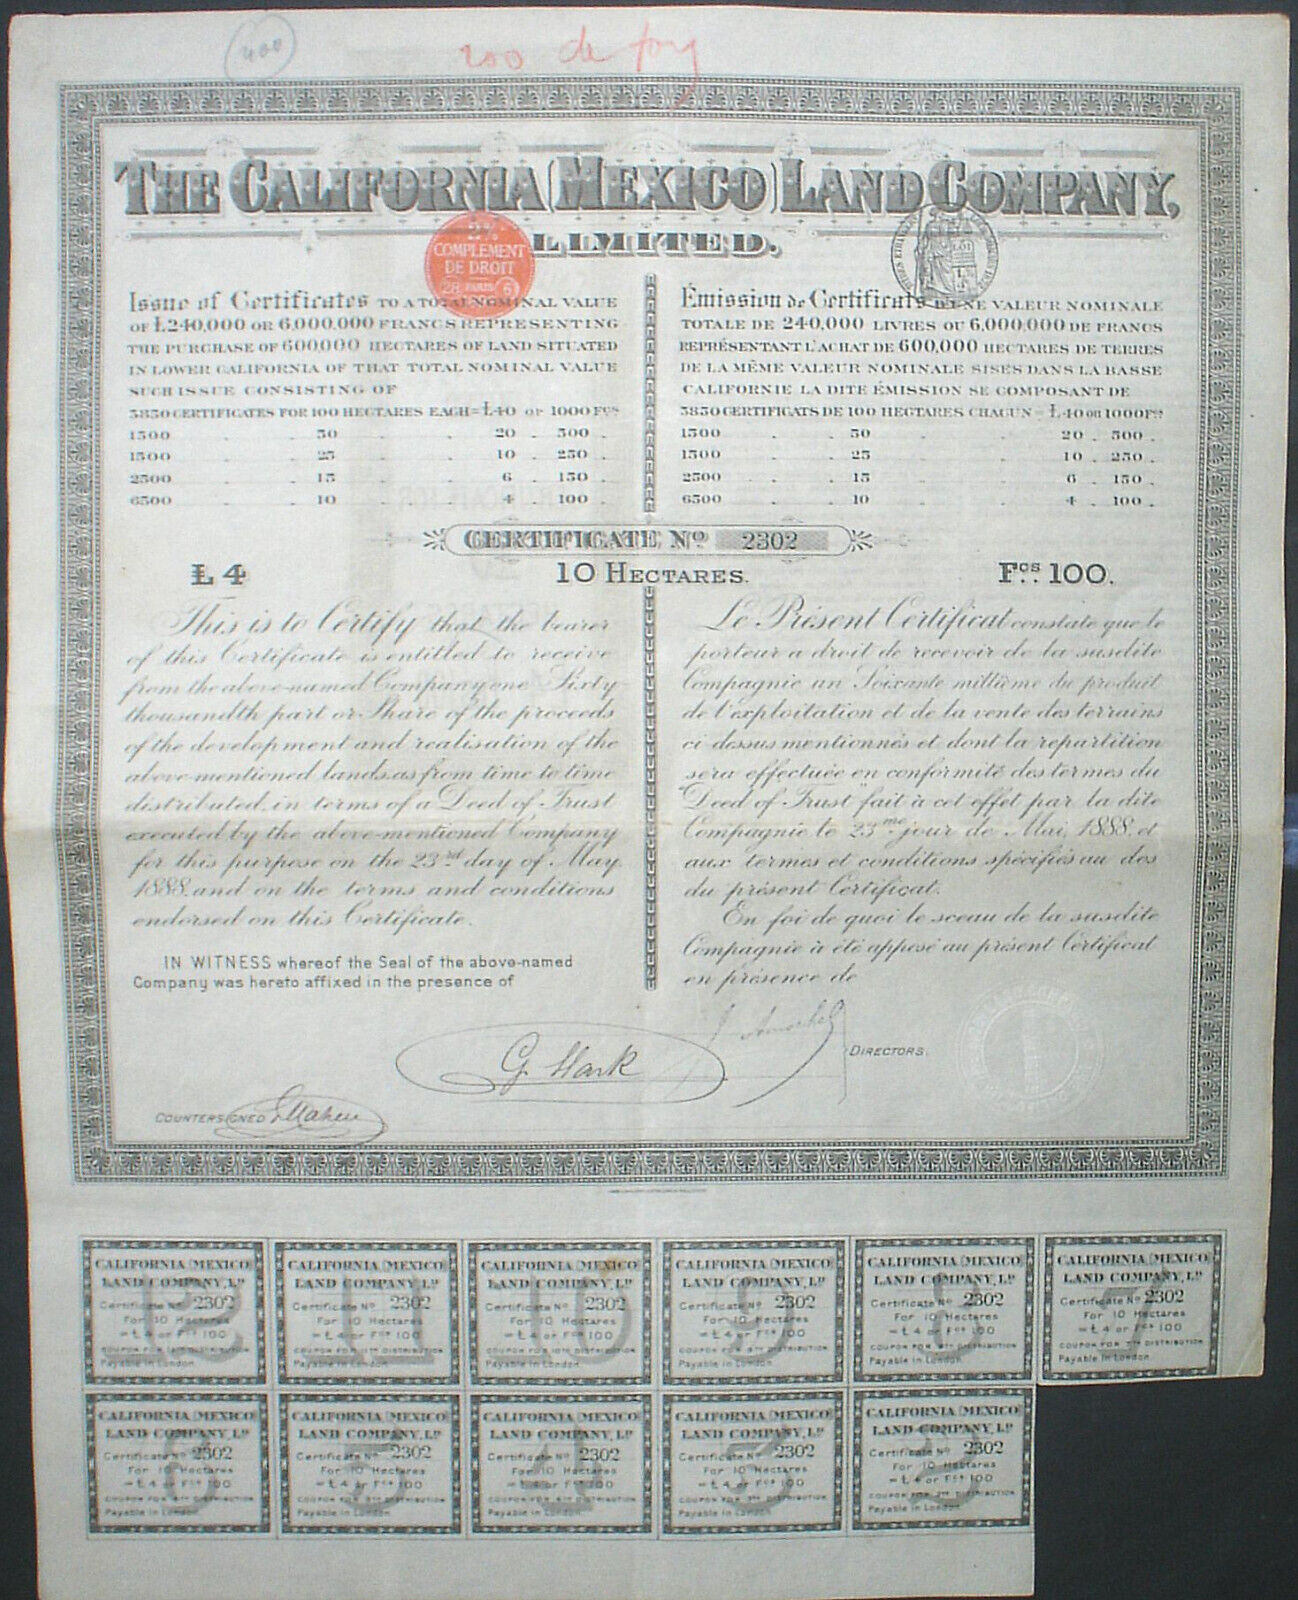 400
200 de
THE CALIFORNIA (MEXICO) LAND COMPANY,
LIMITED.
2%
COMPLEMENT
DE DROIT
28 PARIS 6
Issue of Certificates TO A TOTAL NOMINAL VALUE
OF £240,000 OR 6,000,000 FRANCS REPRESENTING
THE PURCHASE OF 600,000 HECTARES OF LAND SITUATED
IN LOWER CALIFORNIA OF THAT TOTAL NOMINAL VALUE
SUCH ISSUE CONSISTING OF
3850 CERTIFICATES FOR 100 HECTARES EACH = £40 OR 1000 FCS
1500 . . 50 . . 20 . 500 .
1500 . . 25 . . 10 . 250 .
2500 . . 15 . . 6 . 150 .
6500 . . 10 . . 4 . 100 .
Émission de Certificats D'UNE VALEUR NOMINALE
TOTALE DE 240,000 LIVRES OU 6,000,000 DE FRANCS
REPRÉSENTANT L'ACHAT DE 600,000 HECTARES DE TERRES
DE LA MÊME VALEUR NOMINALE SISES DANS LA BASSE
CALIFORNIE LA DITE ÉMISSION SE COMPOSANT DE
3850 CERTIFICATS DE 100 HECTARES CHACUN = £40 OU 1000 FCS
1500 . . 50 . . 20 . 500 .
1500 . . 25 . . 10 . 250 .
2500 . . 15 . . 6 . 150 .
6500 . . 10 . . 4 . 100 .
CERTIFICATE No 2302
£4 10 HECTARES. Fcs. 100.
This is to Certify that the bearer
of this Certificate is entitled to receive
from the above-named Company one Sixty
thousandth part or Share of the proceeds
of the development and realisation of the
above-mentioned lands, as from time to time
distributed, in terms of a Deed of Trust
executed by the above-mentioned Company
for this purpose on the 23rd day of May,
1888, and on the terms and conditions
endorsed on this Certificate.
IN WITNESS whereof the Seal of the above-named
Company was hereto affixed in the presence of
Le Présent Certificat constate que le
porteur a droit de recevoir de la susdite
Compagnie un Soixante millième du produit
de l'exploitation et de la vente des terrains
ci dessus mentionnés et dont la repartition
sera effectuée en conformité des termes du
"Deed of Trust" fait à cet effet par la dite
Compagnie le 23me jour de Mai, 1888, et
aux termes et conditions spécifiés au dos
du présent Certificat.
En foi de quoi le sceau de la susdite
Compagnie à été apposé au présent Certificat
en présence de
DIRECTORS.
COUNTERSIGNED
CALIFORNIA (MEXICO)
LAND COMPANY, LD
Certificate No 2302
For 10 Hectares
= £4 or Fcs 100
COUPON FOR 12TH DISTRIBUTION
Payable in London.
12
CALIFORNIA (MEXICO)
LAND COMPANY, LD
Certificate No 2302
For 10 Hectares
= £4 or Fcs 100
COUPON FOR 11TH DISTRIBUTION
Payable in London.
11
CALIFORNIA (MEXICO)
LAND COMPANY, LD
Certificate No 2302
For 10 Hectares
= £4 or Fcs 100
COUPON FOR 10TH DISTRIBUTION
Payable in London.
10
CALIFORNIA (MEXICO)
LAND COMPANY, LD
Certificate No 2302
For 10 Hectares
= £4 or Fcs 100
COUPON FOR 9TH DISTRIBUTION
Payable in London.
9
CALIFORNIA (MEXICO)
LAND COMPANY, LD
Certificate No 2302
For 10 Hectares
= £4 or Fcs 100
COUPON FOR 8TH DISTRIBUTION
Payable in London.
8
CALIFORNIA (MEXICO)
LAND COMPANY, LD
Certificate No 2302
For 10 Hectares
= £4 or Fcs 100
COUPON FOR 7TH DISTRIBUTION
Payable in London.
7
CALIFORNIA (MEXICO)
LAND COMPANY, LD
Certificate No 2302
For 10 Hectares
= £4 or Fcs 100
COUPON FOR 6TH DISTRIBUTION
Payable in London.
6
CALIFORNIA (MEXICO)
LAND COMPANY, LD
Certificate No 2302
For 10 Hectares
= £4 or Fcs 100
COUPON FOR 5TH DISTRIBUTION
Payable in London.
5
CALIFORNIA (MEXICO)
LAND COMPANY, LD
Certificate No 2302
For 10 Hectares
= £4 or Fcs 100
COUPON FOR 4TH DISTRIBUTION
Payable in London.
4
CALIFORNIA (MEXICO)
LAND COMPANY, LD
Certificate No 2302
For 10 Hectares
= £4 or Fcs 100
COUPON FOR 3RD DISTRIBUTION
Payable in London.
3
CALIFORNIA (MEXICO)
LAND COMPANY, LD
Certificate No 2302
For 10 Hectares
= £4 or Fcs 100
COUPON FOR 2ND DISTRIBUTION
Payable in London.
2